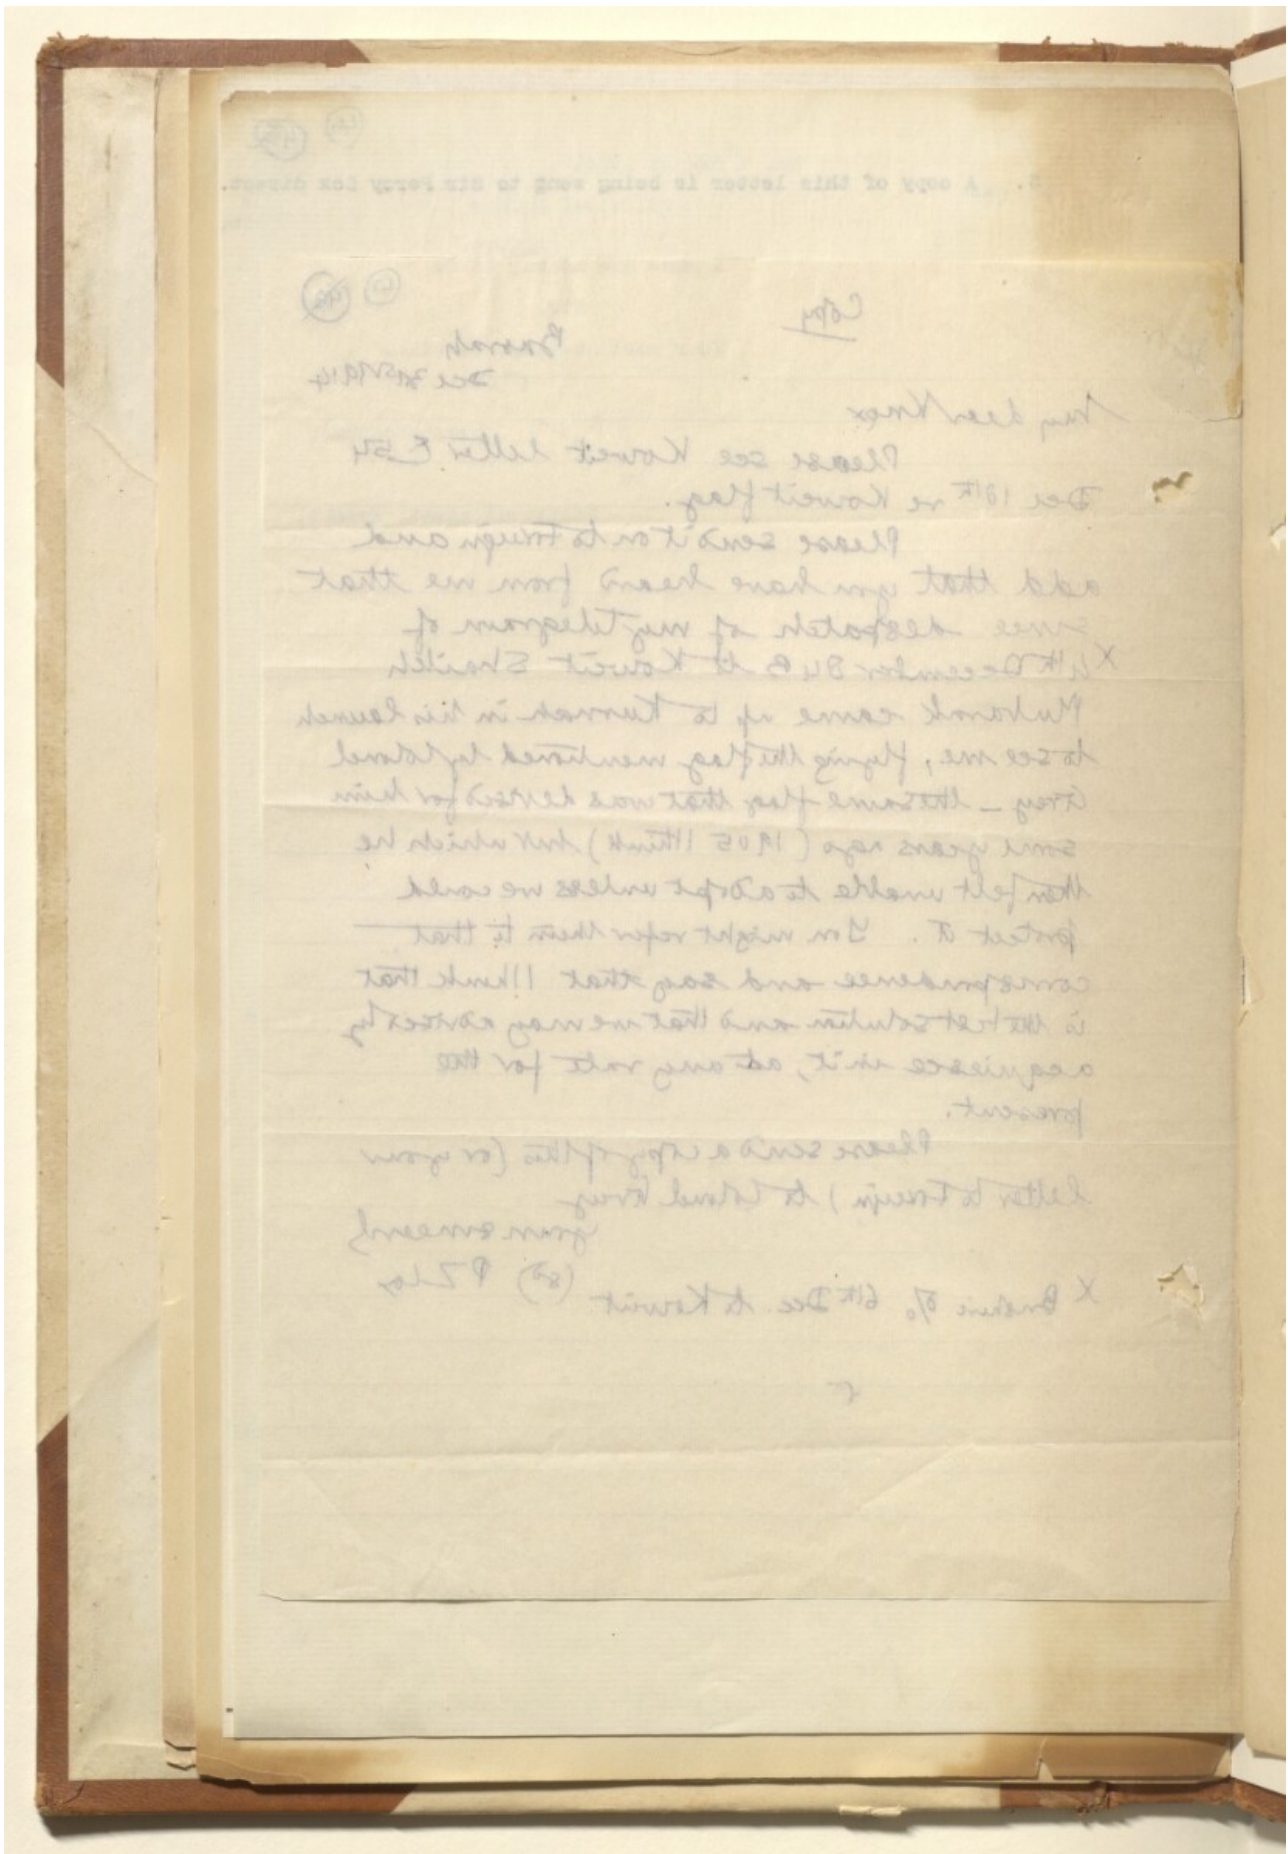 5. A copy of this letter is being sent to Sir Percy Cox direct.
Copy
Basrah
Dec 1914
My dear Knox
Please see Koweit letter C 54
Dec 18th re Koweit flag.
Please send it on to Foreign and
add that you have heard from me that
since despatch of my telegram of
X 4th December 84 B to Koweit Shaikh
Mubarak came up to Kurnah in his launch
to see me, flying the flag mentioned by Colonel
Grey - the same flag that was devised for him
some years ago (1905 I think) but which he
then felt unable to adopt unless we could
protect it. You might refer them to that
correspondence and say that I think that
is the best solution and that we may advisedly
acquiesce in it, at any rate for the
present.
Please send a copy of this (or your
letter to Foreign) to Colonel Grey
Yours sincerely
(sd) P Z Cox
X Bushire % 6th Dec. to Koweit